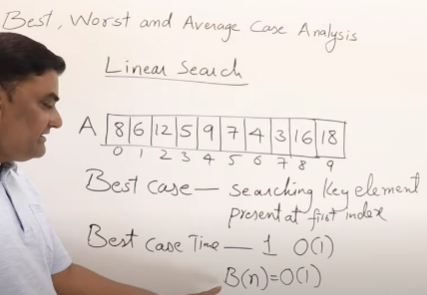 Best, Worst and Average Case Analysis
Linear Search
A 8 6 12 5 9 7 4 3 16 18
0 1 2 3 4 5 6 7 8 9
Best case — searching key element
present at first index
Best Case Time — 1 O(1)
B(n)=O(1)